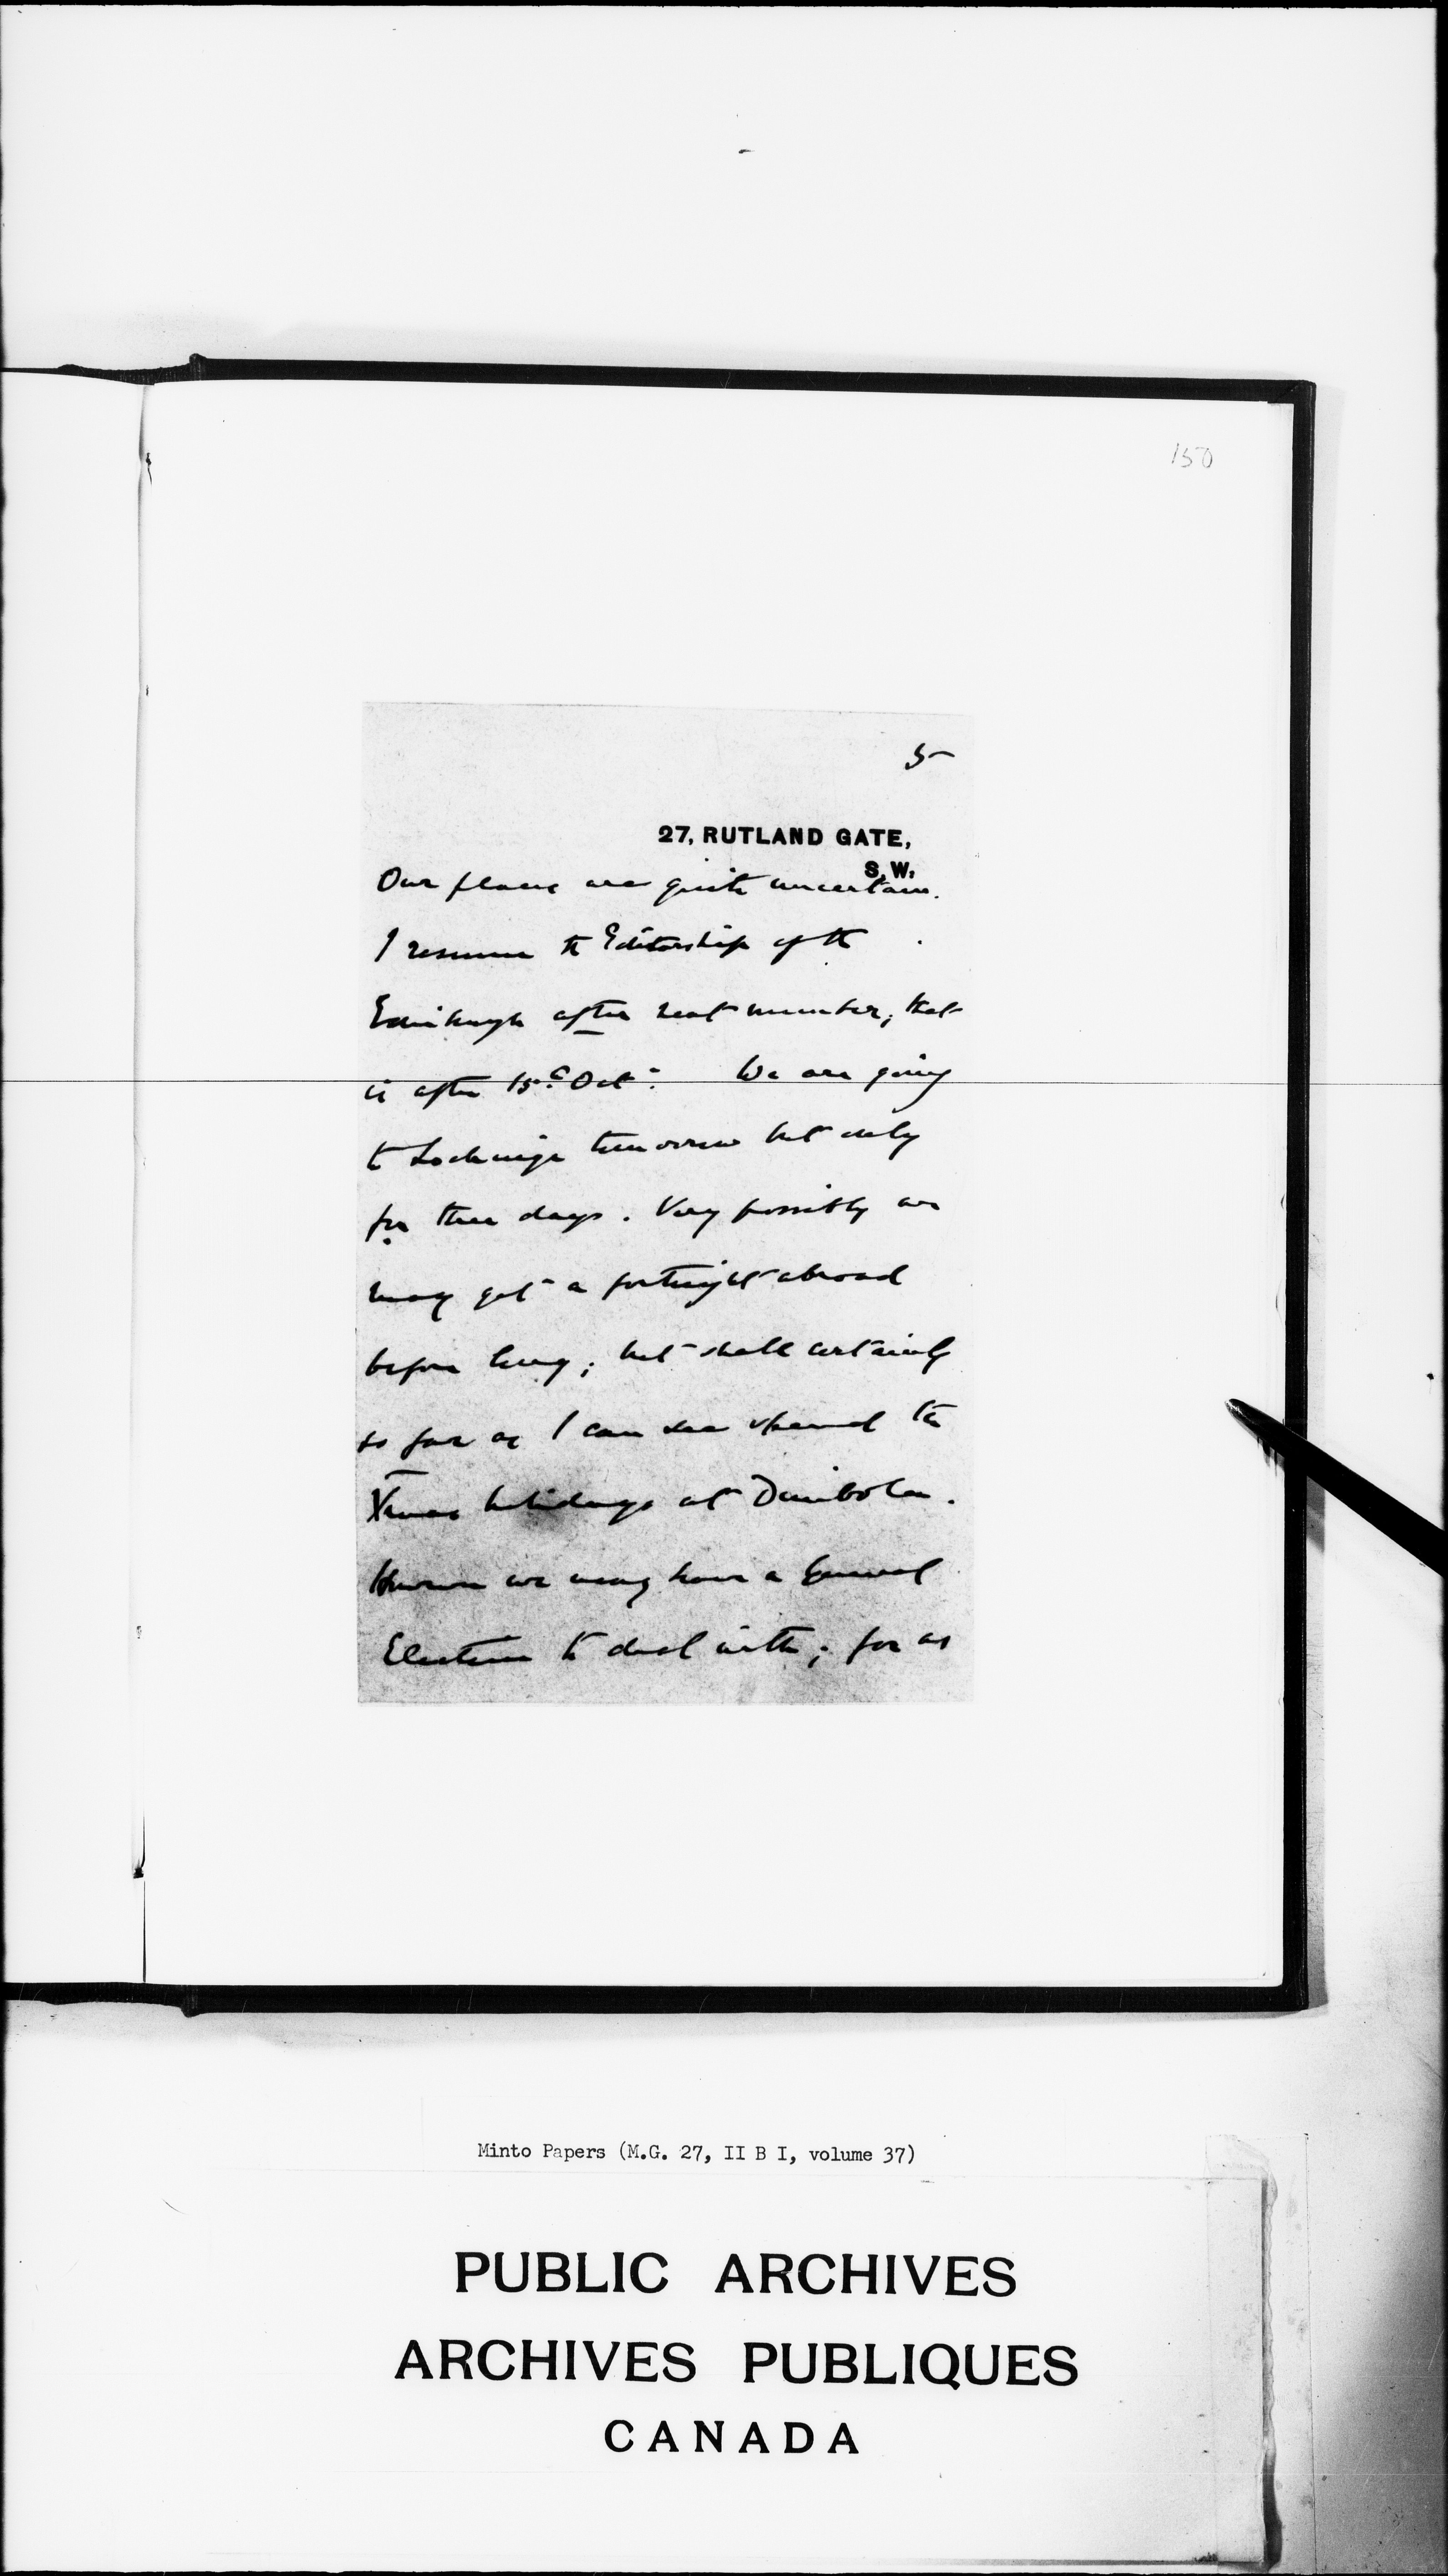 150
5
27, RUTLAND GATE,
S.W.
Our plans are quite uncertain.
I resume the Editorship of the
Edinburgh after next number, that
is after 15th Oct:. We are going
to Lockinge tomorrow but only
for three days. Very possibly we
may get a fortnight abroad
before long; but shall certainly
so far as I can see spend the
Xmas holidays at Dimbola.
However we may have a General
Election to deal with; for as
Minto Papers (M.G. 27, II B I, volume 37)
PUBLIC ARCHIVES
ARCHIVES PUBLIQUES
CANADA